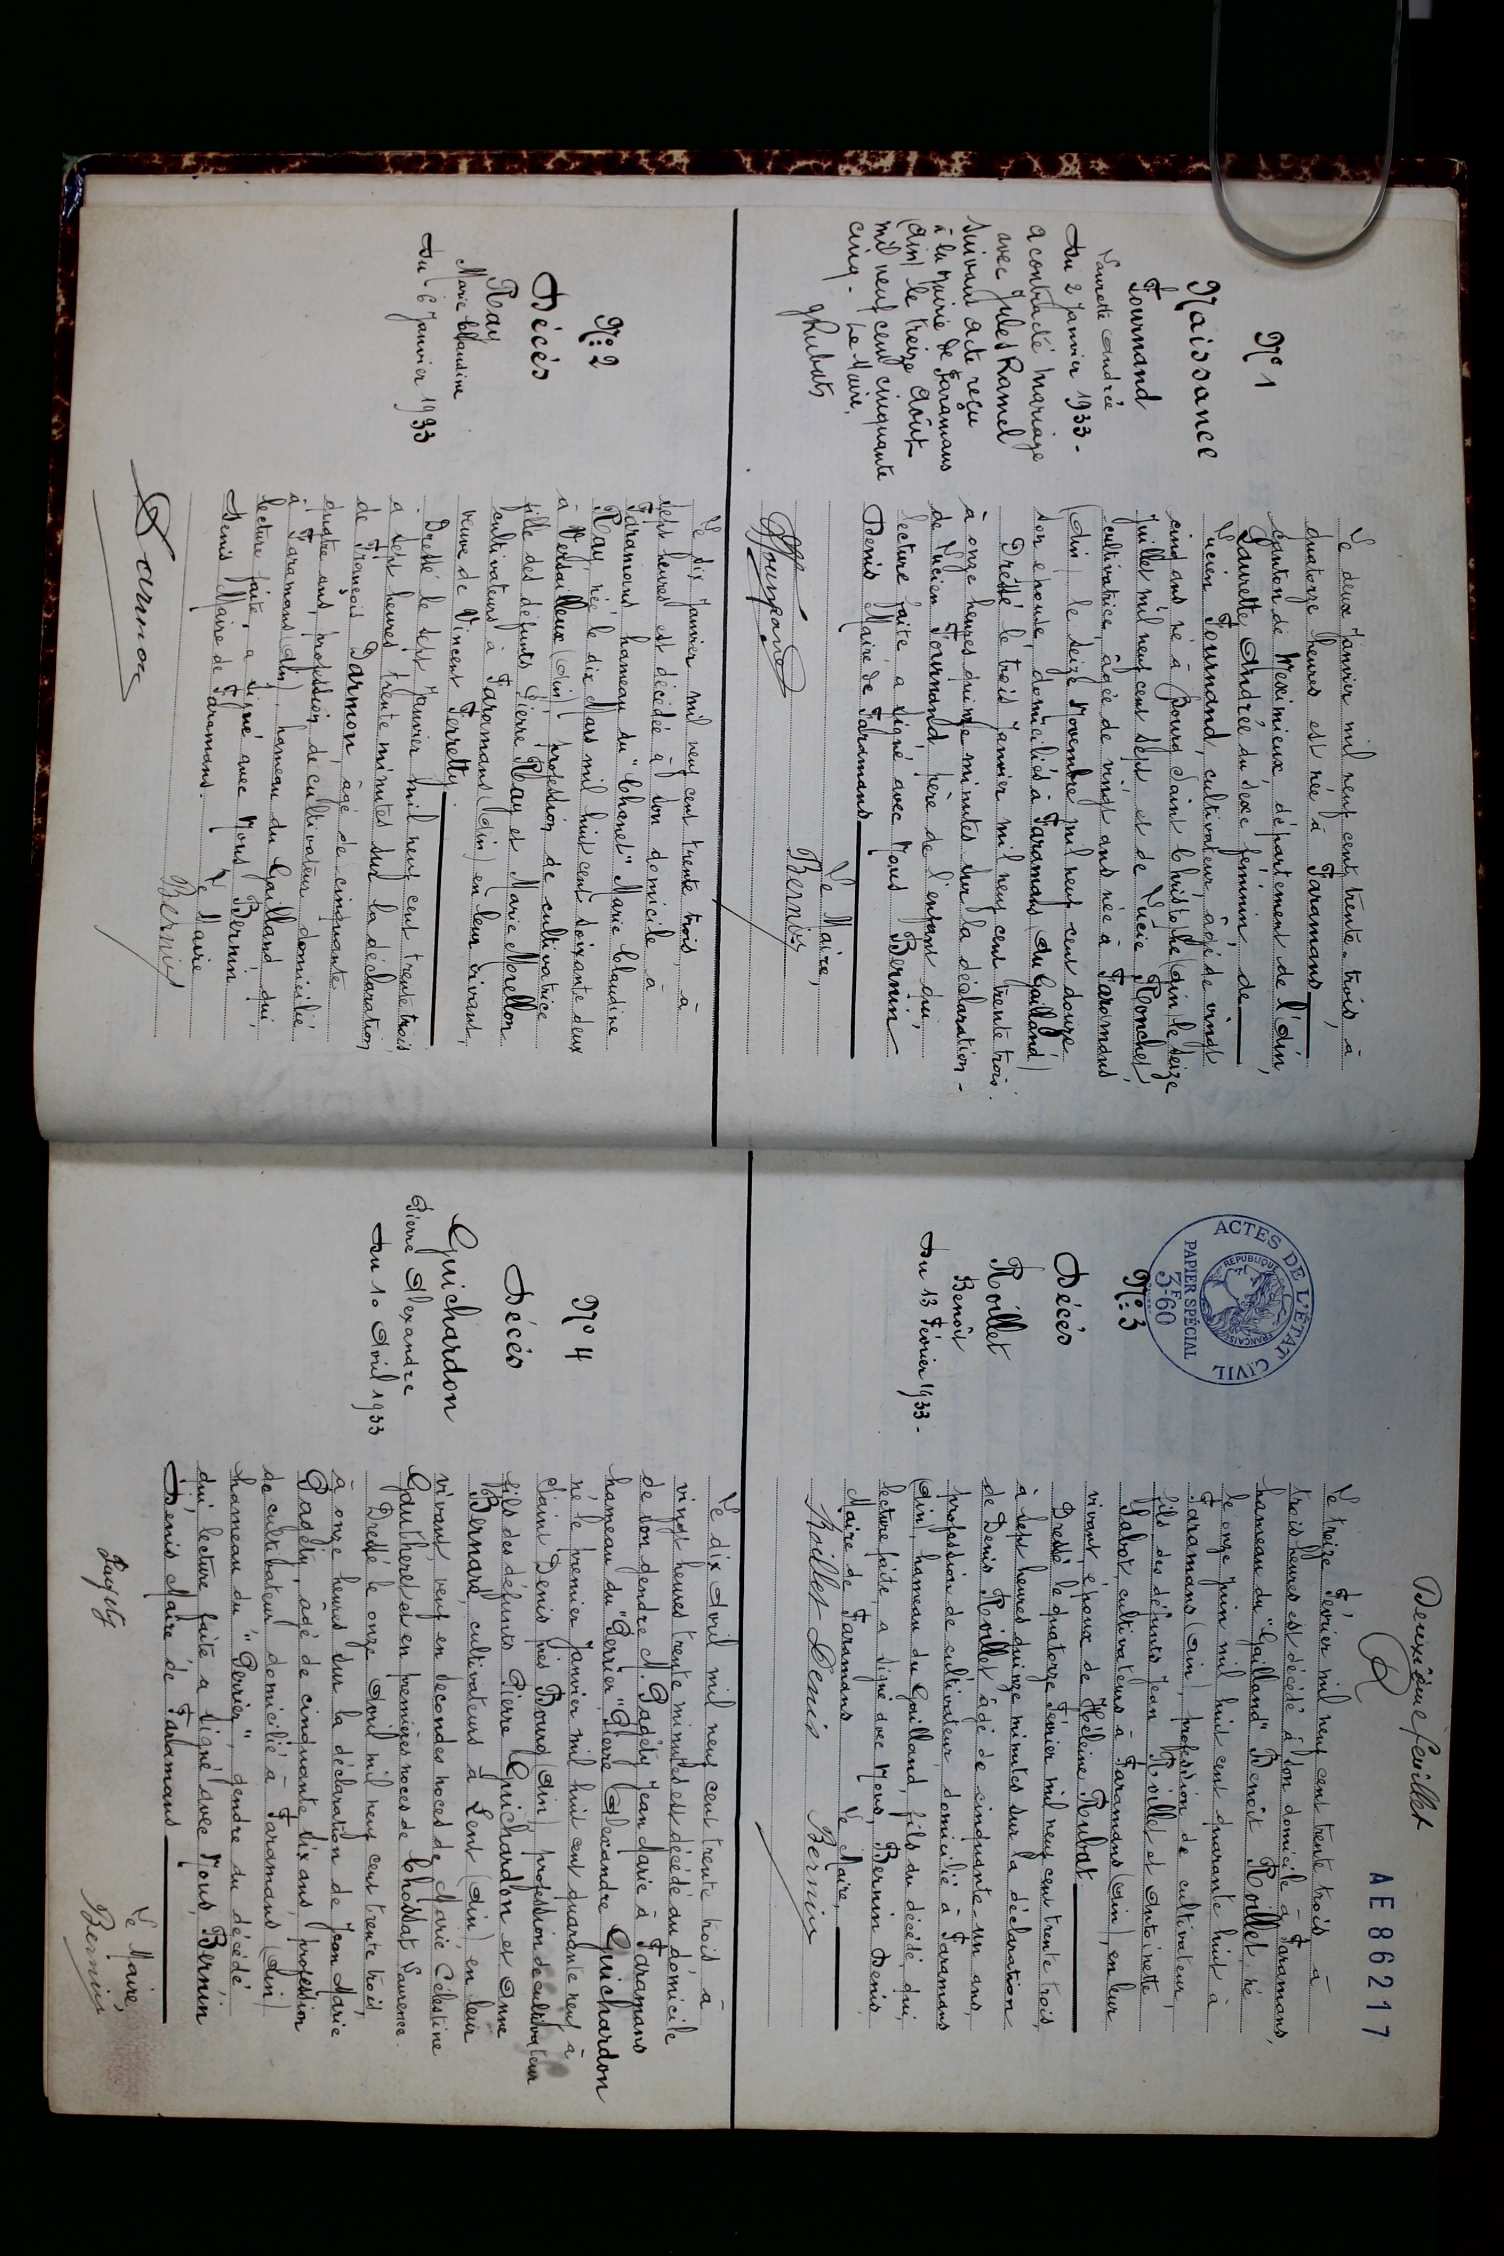 N° 1
Naissance
Fournand
Laurette Andrée
Du 2 Janvier 1933 -
a contracté mariage
avec Jules Ramel
suivant acte reçu
à la Mairie de Faramans
(Ain) le treize Août
mil neuf cent cinquante
cinq - Le Maire,
Le deux Janvier mil neuf cent trente-trois, à
quatorze heures est née à Faramans,
canton de Meximieux, département de l'Ain,
Laurette Andrée du sexe féminin, de
Lucien Fournand, cultivateur, âgé de vingt
cinq ans né à Bourg Saint Christophe (Ain) le seize
Juillet mil neuf cent sept et de Lucie Ronchet,
cultivatrice, âgée de vingt ans née à Faramans
(Ain) le seize Novembre mil neuf cent douze,
son épouse, domiciliés à Faramans (du Gailland)
Dressé le trois Janvier mil neuf cent trente trois.
à onze heures quinze minutes sur la déclaration -
de Lucien Fournand père de l'enfant qui,
lecture faite a signé avec Nous Bernin
Denis Maire de Faramans
Le Maire,
Fournand Bernin
N° 2
Décès
Ray
Marie Claudine
Du 6 Janvier 1933
Le six Janvier mil neuf cent trente trois, à
sept heures est décédée à son domicile à
Faramans, hameau du "Chanel" Marie Claudine
Ray, née le dix Mars mil huit cent soixante deux
à Versailleux (Ain), profession de cultivatrice
fille des défunts Pierre Ray et Marie Morellon
cultivateurs à Faramans (Ain) en leur vivant,
veuve de Vincent Ferretty
Dressé le sept Janvier mil neuf cent trente trois,
à sept heures trente minutes sur la déclaration
de François Darmon, âgé de cinquante
quatre ans, profession de cultivateur domicilié
à Faramans (Ain), hameau du Gailland, qui,
lecture faite, a signé avec Nous Bernin
Denis Maire de Faramans. Le Maire
Darmon Bernin
Deuxième feuillet
AE86217
ACTES DE L'ÉTAT CIVIL
RÉPUBLIQUE FRANÇAISE
PAPIER SPÉCIAL
3F60
N° 3
Décès
Roillet
Benoît
Du 13 Février 1933 -
Le treize Février mil neuf cent trente trois à
trois heures est décédé à son domicile à Faramans,
hameau du "Gailland" Benoît Roillet, né
le onze Juin mil huit cent quarante huit à
Faramans (Ain), profession de cultivateur,
fils des défunts Jean Roillet et Antoinette
Sabot, cultivateurs à Faramans (Ain), en leur
vivant, époux de Hélène Rubat
Dressé le quatorze Février mil neuf cent trente trois,
à sept heures quinze minutes sur la déclaration
de Denis Roillet âgé de cinquante-un ans,
profession de cultivateur, domicilié à Faramans
(Ain), hameau du Gailland, fils du décédé, qui,
lecture faite, a signé avec Nous, Bernin Denis,
Maire de Faramans Le Maire,
Roillet Denis Bernin
N° 4
Décès
Guichardon
Pierre Alexandre
Du 10 Avril 1933
Le dix Avril mil neuf cent trente trois à
vingt heures trente minutes est décédé au domicile
de son gendre M. Pagéty Jean Marie à Faramans
hameau du "Perrier", Pierre Alexandre Guichardon
né le premier Janvier mil huit cent quarante neuf à
Saint Denis près Bourg (Ain), profession de cultivateur
fils des défunts Pierre Guichardon et Anne
Bernard, cultivateurs à Lent (Ain), en leur
vivant, veuf en secondes noces de Marie Célestine
Gautheret et en premières noces de Chossat Laurence.
Dressé le onze Avril mil neuf cent trente trois,
à onze heures sur la déclaration de Jean Marie
Pagéty, âgé de cinquante six ans, profession
de cultivateur domicilié à Faramans (Ain)
hameau du "Perrier", gendre du décédé,
qui lecture faite a signé avec Nous, Bernin
Dénis Maire de Faramans
Le Maire,
Pagéty Bernin